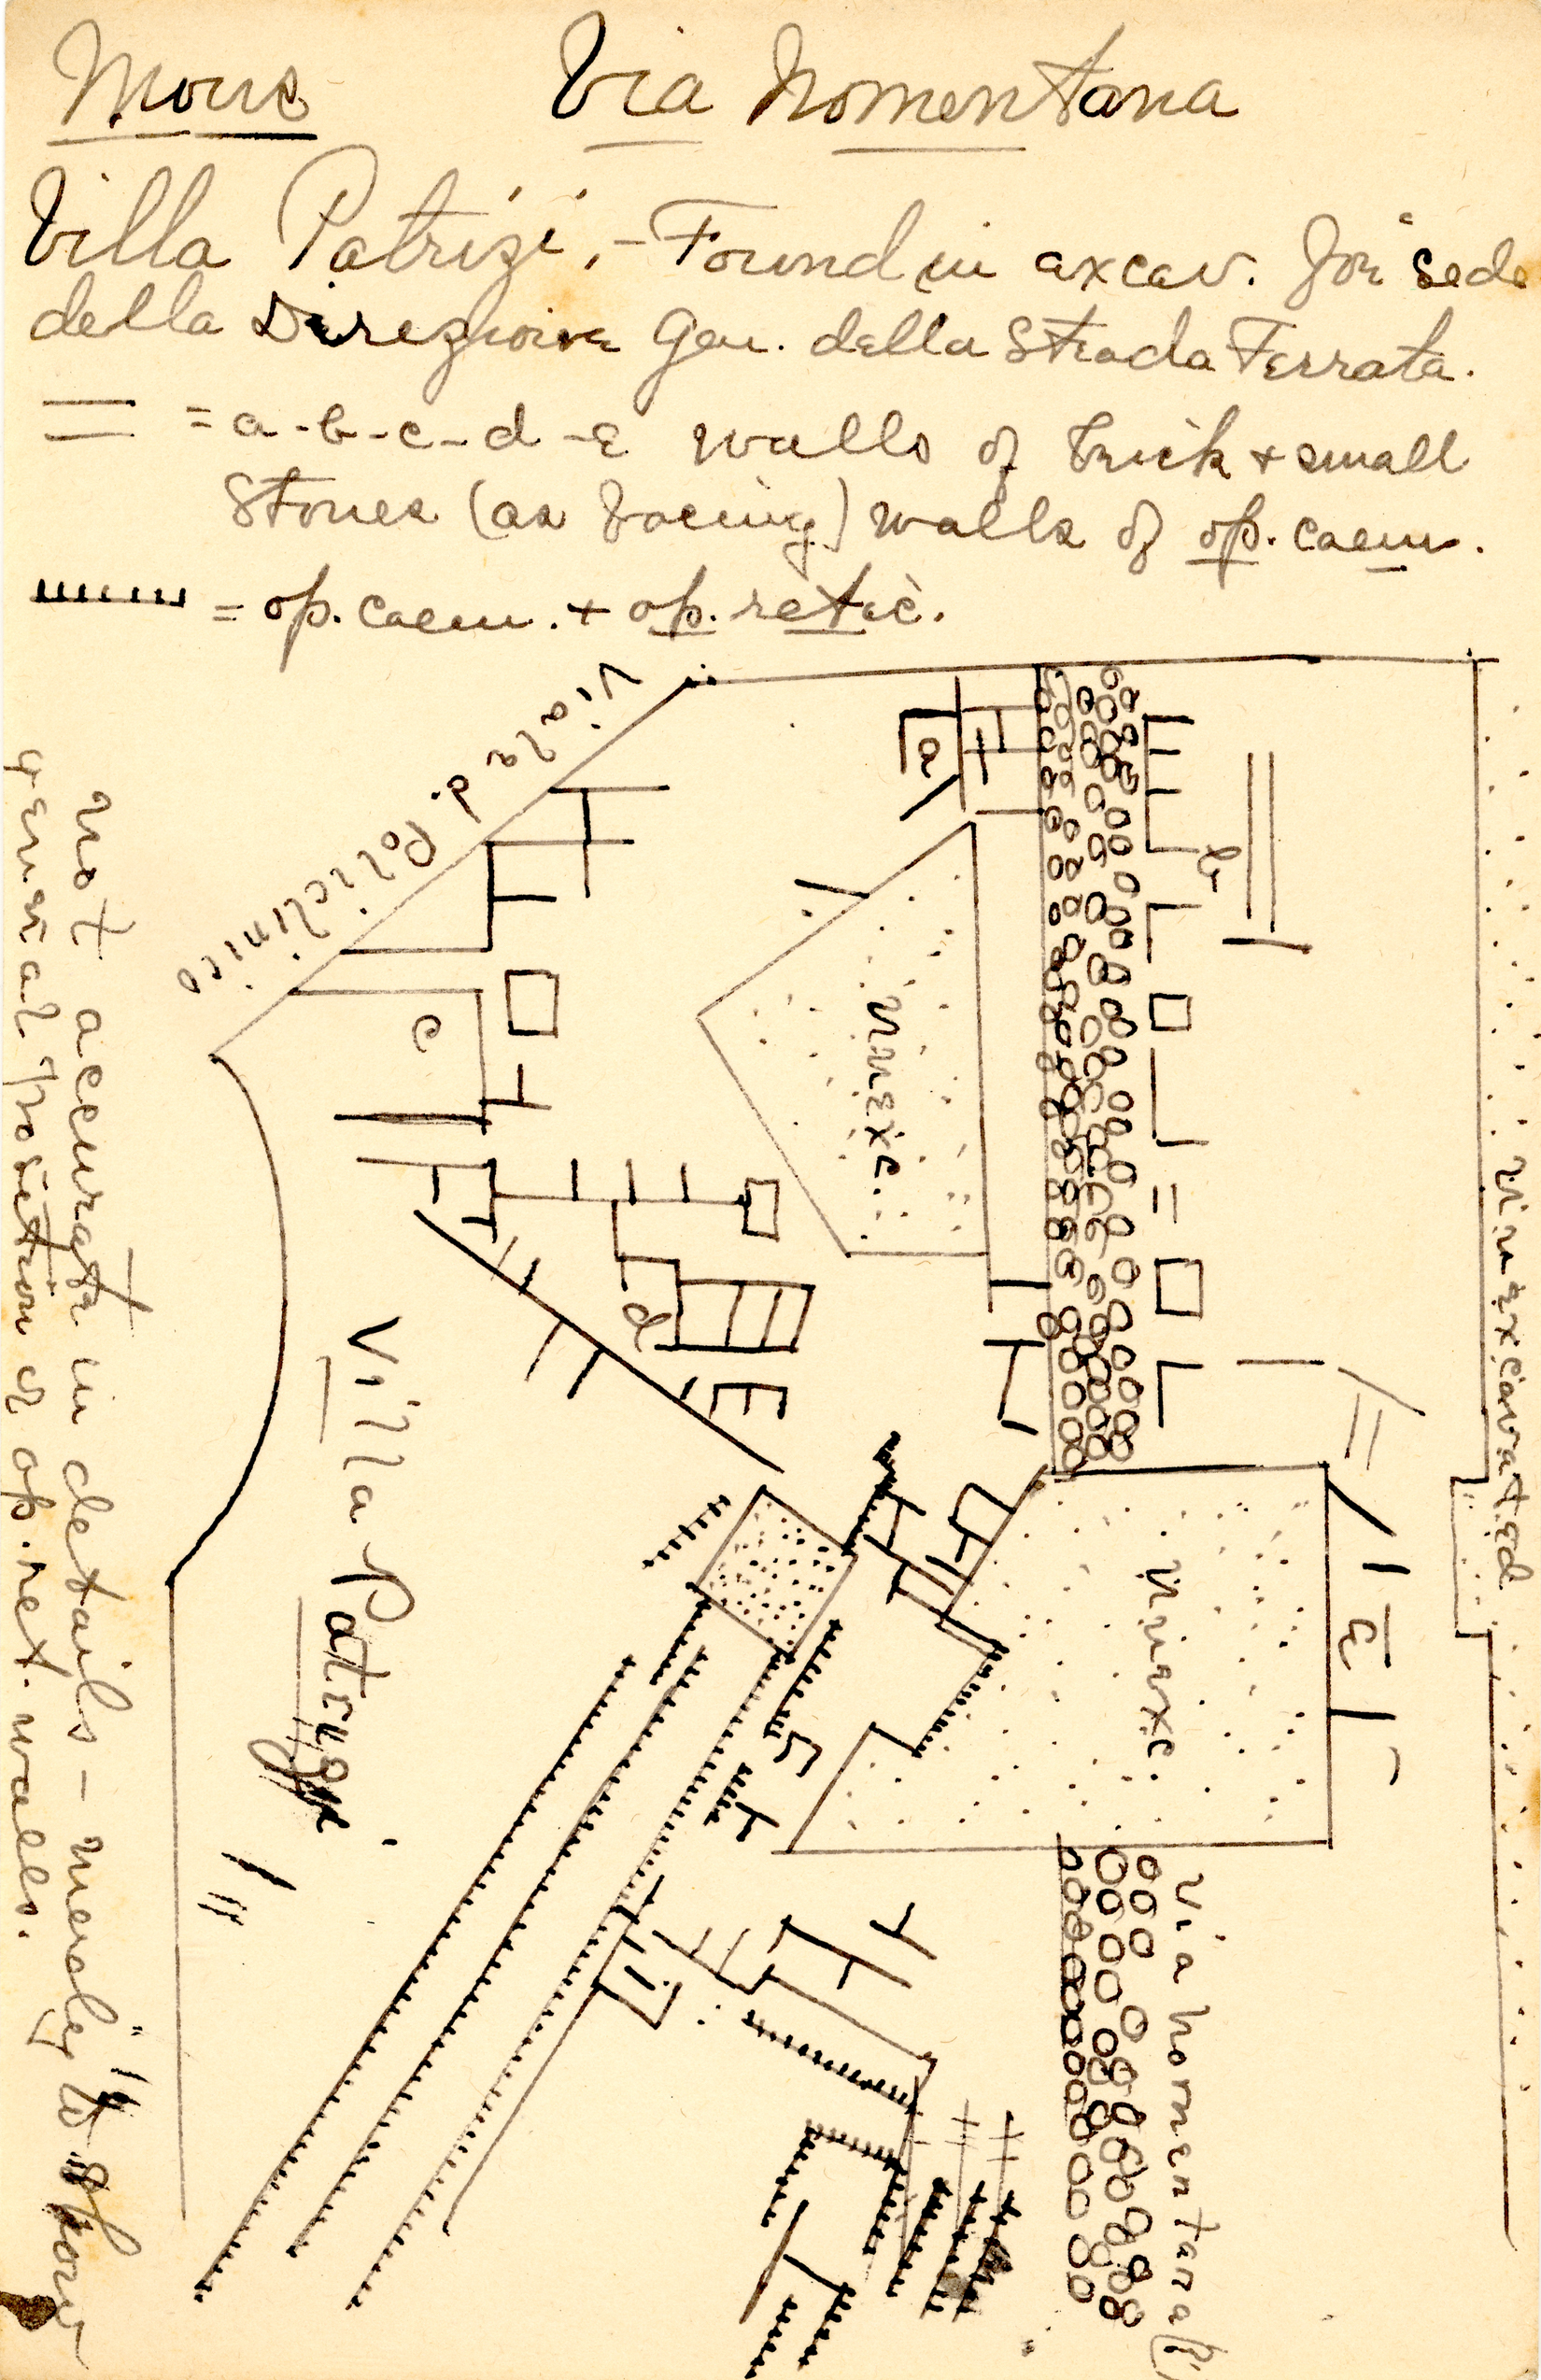 Mons Via Nomentana
Villa Patrizi, - Found in excav. for sede
della Direzione Gen. della Strada Ferrata.
= a-b-c-d-e walls of brick + small
stones (as facing) walls of op. caem.
= op. caem. + op. retic.
Viale d. Policlinico
a
b
unexc.
c
d
unexcavated
Villa Patrizi
unexc.
e
Via Nomentana (?)
not accurate in details - merely to show
general position of op. ret. walls.